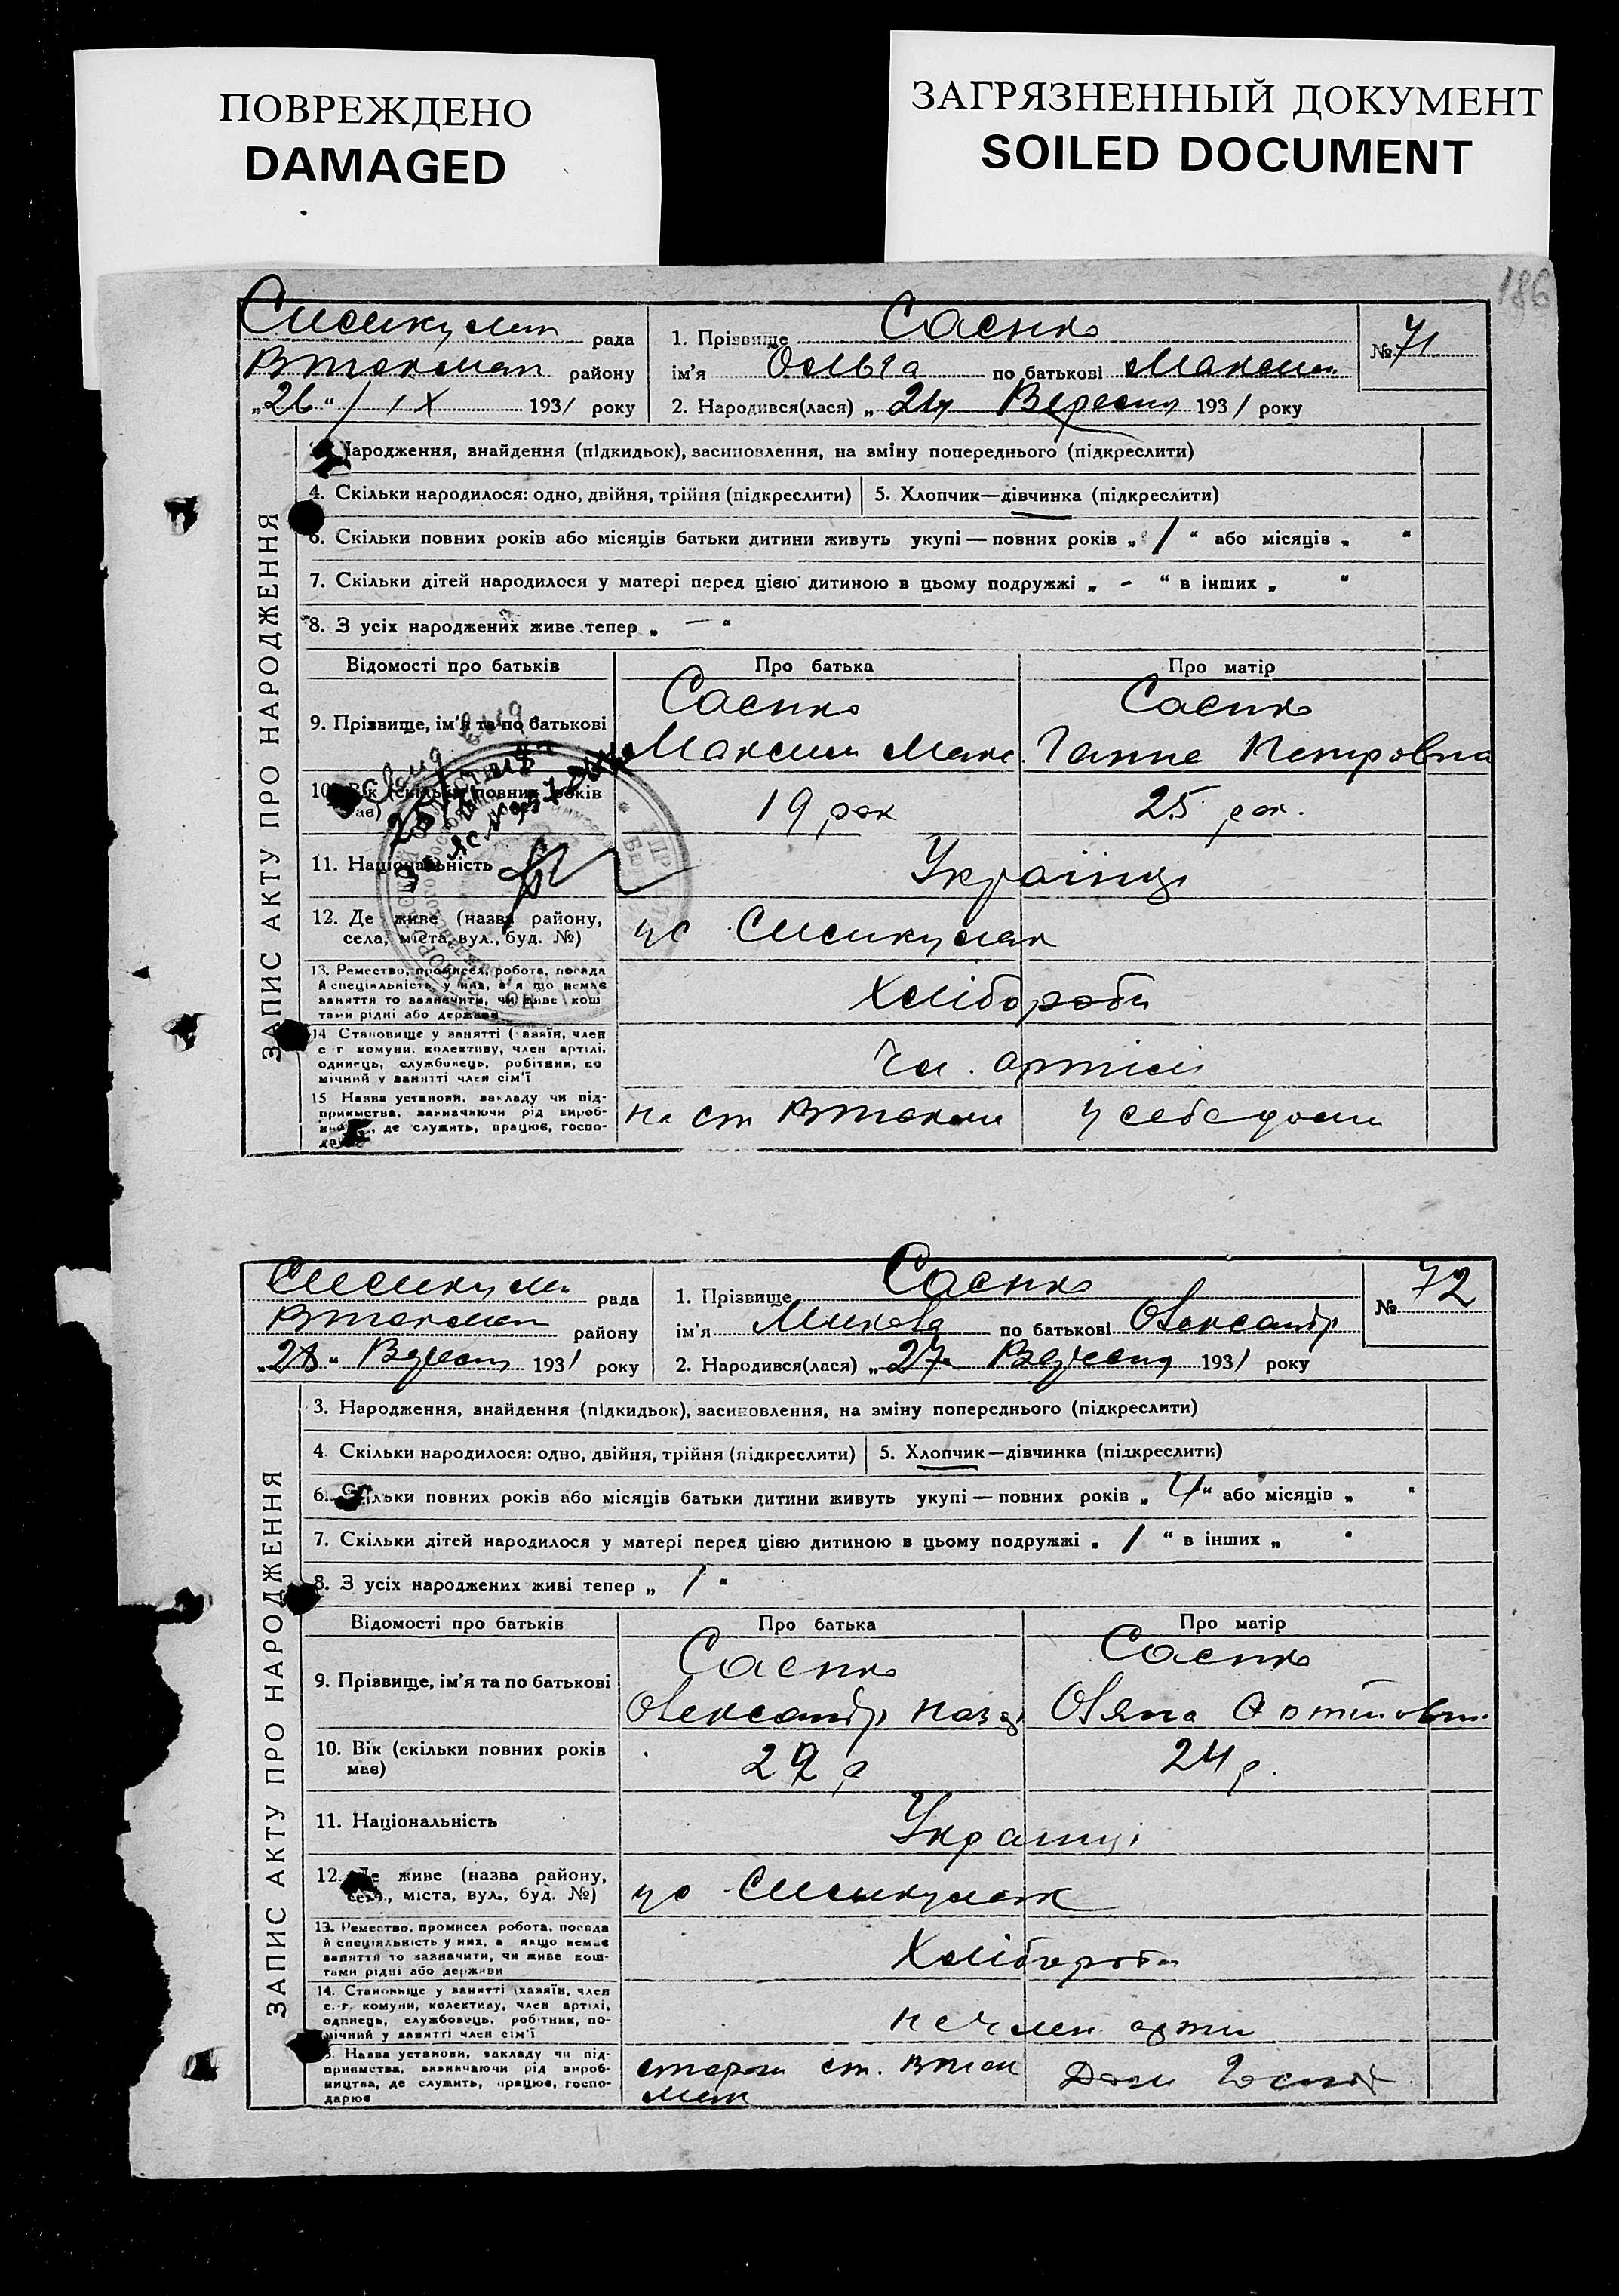 ПОВРЕЖДЕНО
DAMAGED
ЗАГРЯЗНЕННЫЙ ДОКУМЕНТ
SOILED DOCUMENT
186
рада
району
„26“ / IX 1931 року
1. Прізвище Саєнко
ім'я Ольга по батькові Максим
2. Народився(лася) „ Вересня 1931 року
№ 71
ЗАПИС АКТУ ПРО НАРОДЖЕННЯ
Народження, знайдення (підкидьок), засиновлення, на зміну попереднього (підкреслити)
4. Скільки народилося: одно, двійня, трійня (підкреслити)
5. Хлопчик—дівчинка (підкреслити)
6. Скільки повних років або місяців батьки дитини живуть укупі — повних років „ 1 “ або місяців „ “
7. Скільки дітей народилося у матері перед цією дитиною в цьому подружжі „ - “ в інших „ “
8. З усіх народжених живе тепер „ — “
Відомості про батьків
Про батька
Про матір
9. Прізвище, ім'я та по батькові
Саєнко
Максим Макс
Саєнко
Ганна Петровна
10. Вік (скільки повних років
має)
19 рок
25 рок.
11. Національність
Українці
12. Де живе (назва району,
села, міста, вул., буд. №)
13. Ремество, промисел, робота, посада
й спеціяльність у них, а
заняття то зазначити, чи живе кош
тами рідні або держави
Хлібороби
14 Становище у занятті (хазяїн, член
с г комуни, колективу, член артілі,
одинець, службовець, робітник, по
мічний у занятті член сім'ї
Чл. артілі
15 Назва установи, закладу чи під-
приємства, зазначаючи рід вироб-
де служить, працює, госпо-
На ст
у себе дома
рада
району
„28“ Вересня 1931 року
1. Прізвище Саєнко
ім'я Микола по батькові Олександр
2. Народився(лася) „27“ Вересня 1931 року
№ 72
ЗАПИС АКТУ ПРО НАРОДЖЕННЯ
3. Народження, знайдення (підкидьок), засиновлення, на зміну попереднього (підкреслити)
4. Скільки народилося: одно, двійня, трійня (підкреслити)
5. Хлопчик—дівчинка (підкреслити)
6. Скільки повних років або місяців батьки дитини живуть укупі — повних років „ 4 “ або місяців „ “
7. Скільки дітей народилося у матері перед цією дитиною в цьому подружжі „ 1 “ в інших „ “
8. З усіх народжених живі тепер „ 1 “
Відомості про батьків
Про батька
Про матір
9. Прізвище, ім'я та по батькові
Саєнко
Олександр Наза
Саєнко
10. Вік (скільки повних років
має)
29 р
24 р.
11. Національність
Українці
12. Де живе (назва району,
села, міста, вул., буд. №)
13. Ремество, промисел робота, посада
й спеціяльність у них, а якщо немає
заняття то зазначити, чи живе кош-
тами рідні або держави
Хлібороби
14. Становище у занятті (хазяїн, член
с.-г. комуни, колективу, член артілі,
одинець, службовець, робітник, по-
мічний у занятті член сім'ї
не член арти
15. Назва установи, закладу чи під-
приємства, зазначаючи рід вироб-
ництва, де служить, працює, госпо-
дарює
ст.